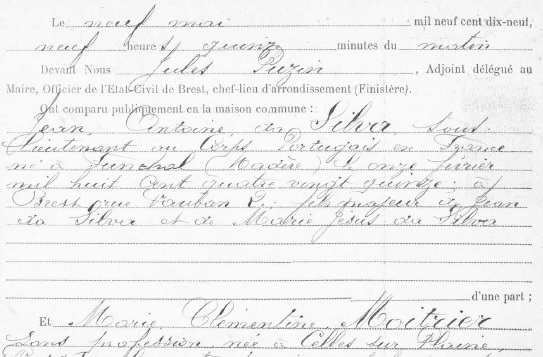 Le neuf mai mil neuf cent dix-neuf,
neuf heures quinze minutes du matin
Devant Nous Jules Puzin, Adjoint délégué au
Maire, Officier de l'Etat-Civil de Brest, chef-lieu d'arrondissement (Finistère).
Ont comparu publiquement en la maison commune :
Jean, Antoine, da Silva, sous-
lieutenant au Corps Portugais en France
né à Funchal (Madère) le onze février
mil huit cent quatre vingt quinze; à
Brest rue Vauban 2; fils majeur de Jean
da Silva et de Marie Jésus da Silva
d'une part ;
Et Marie, Clémentine, Moitrier
sans profession, née à Celles sur Plaine,